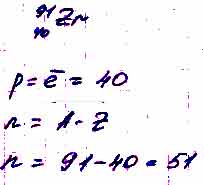 ⁹¹₄₀Zr
p = ē = 40
n = A - Z
n = 91 - 40 = 51